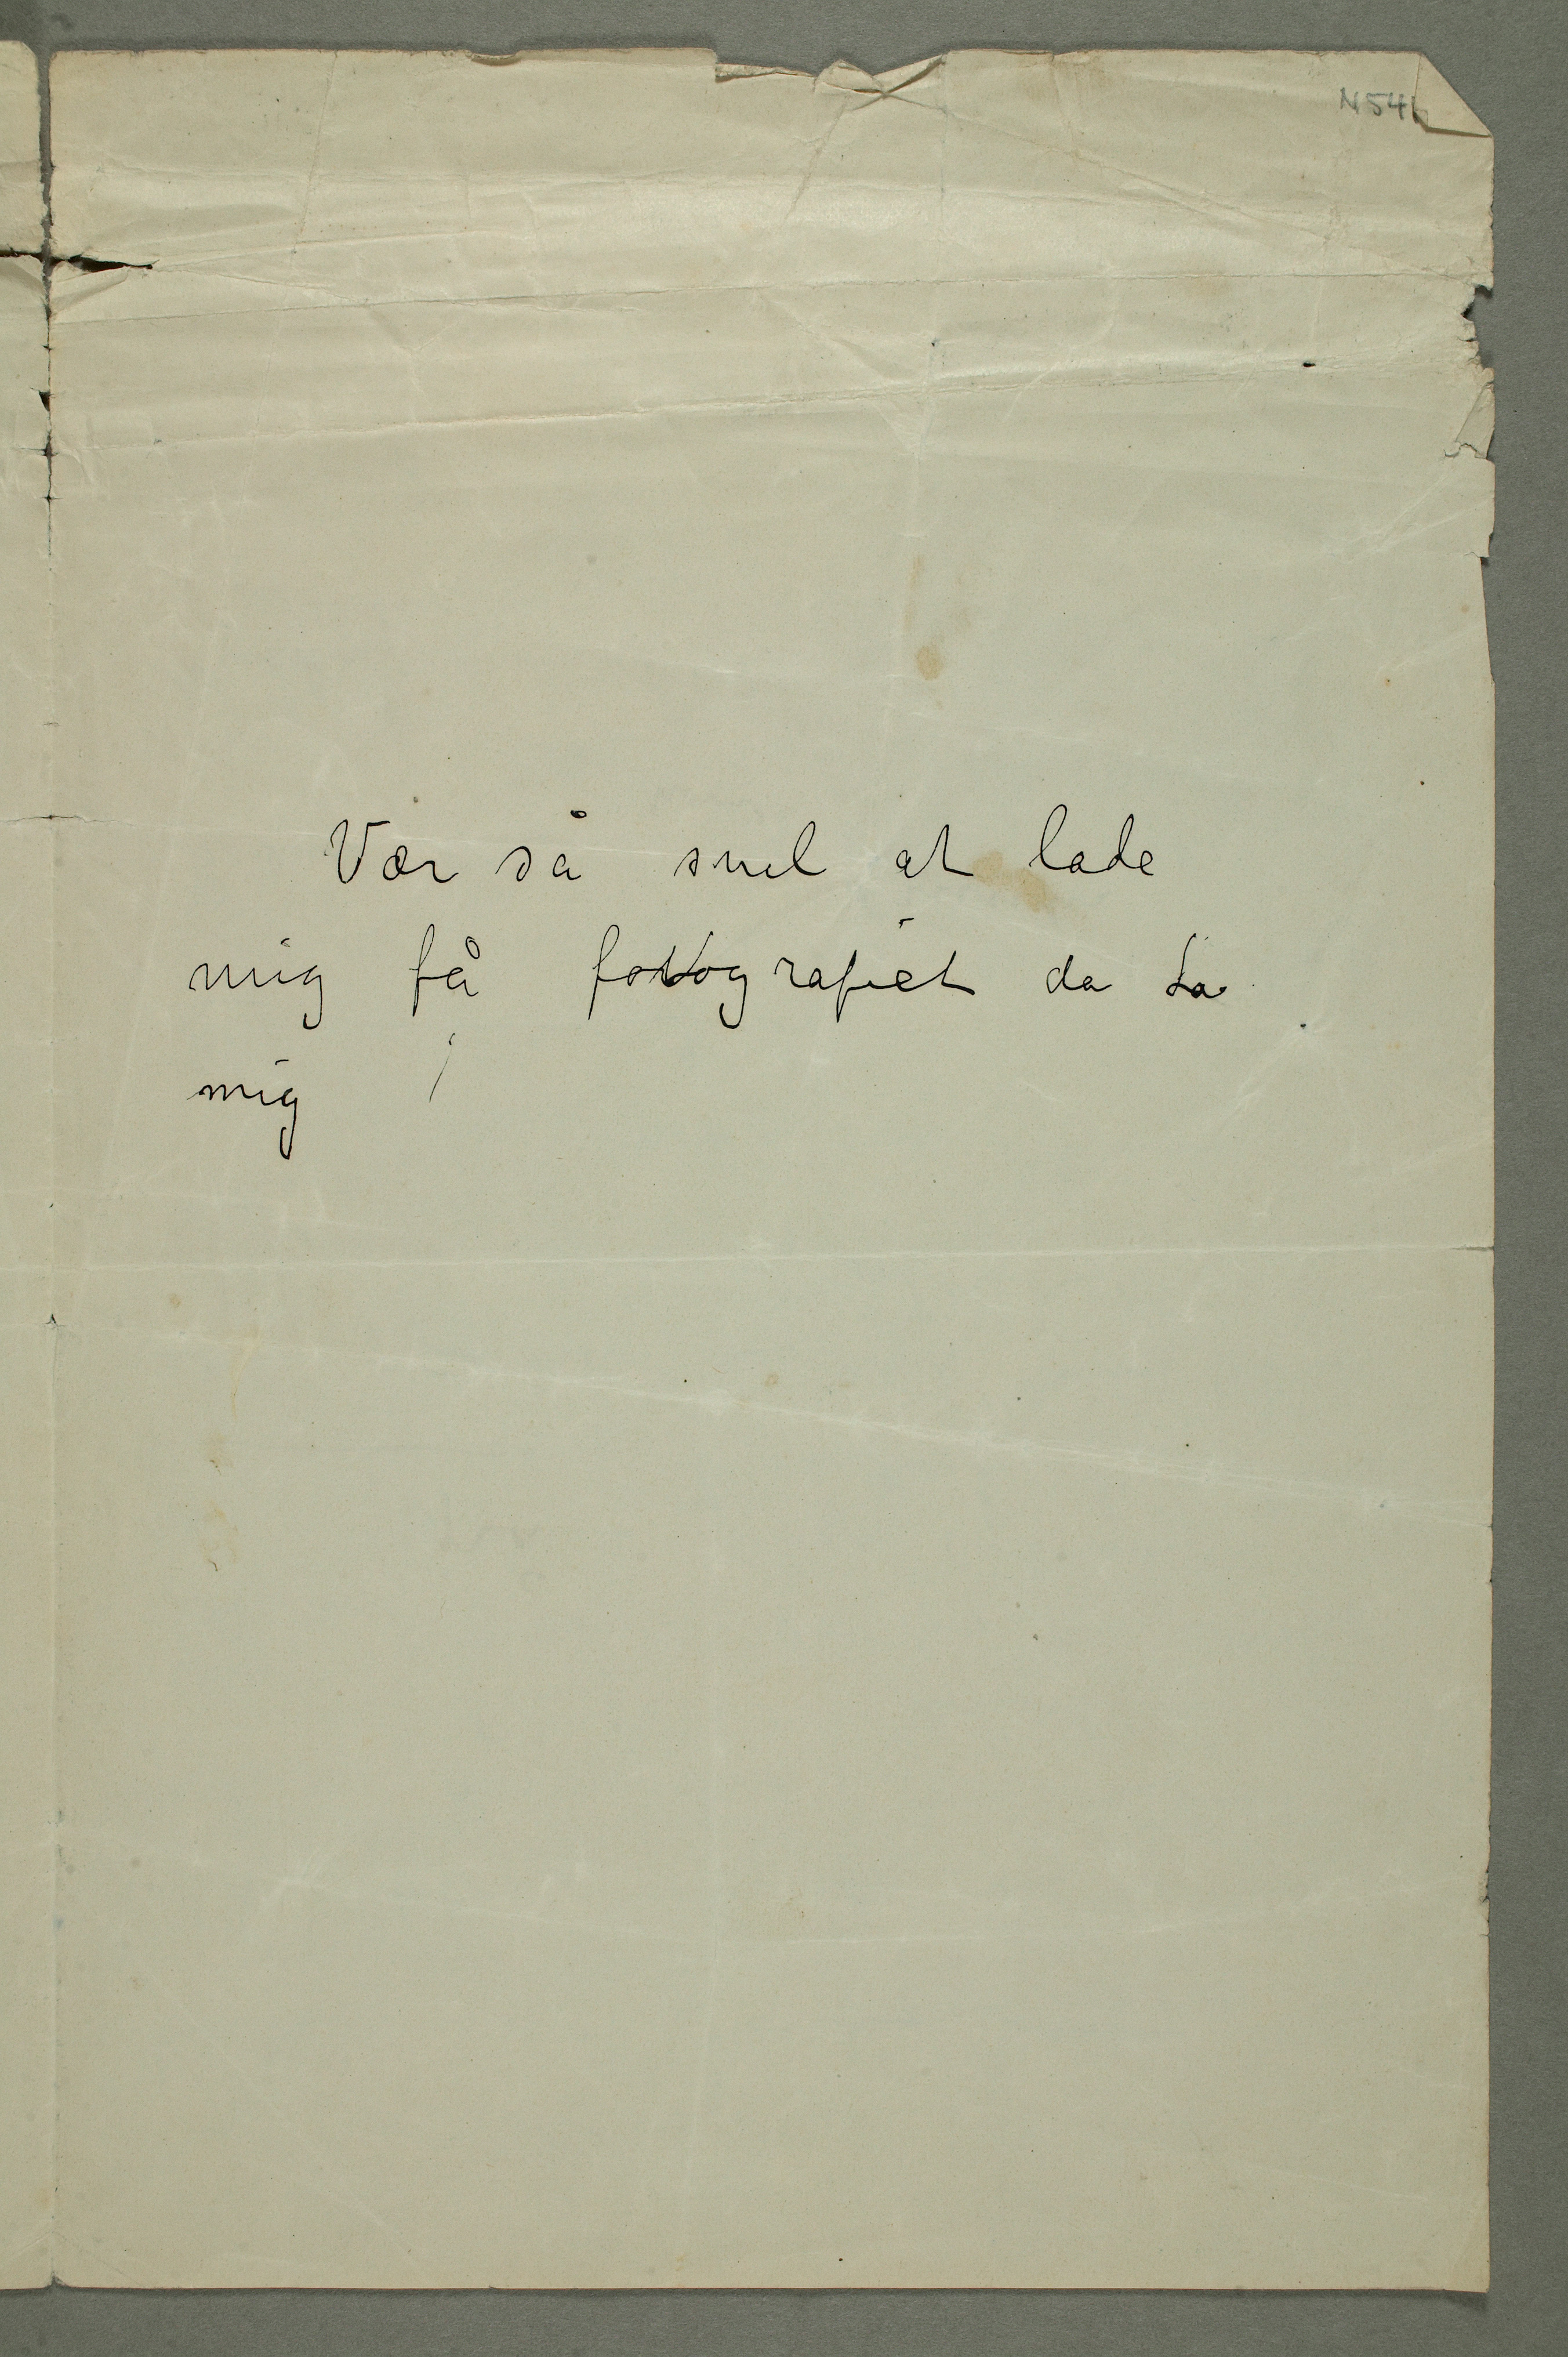 N54
Vær så snel at lade
mig få fotografiet da La
mig i